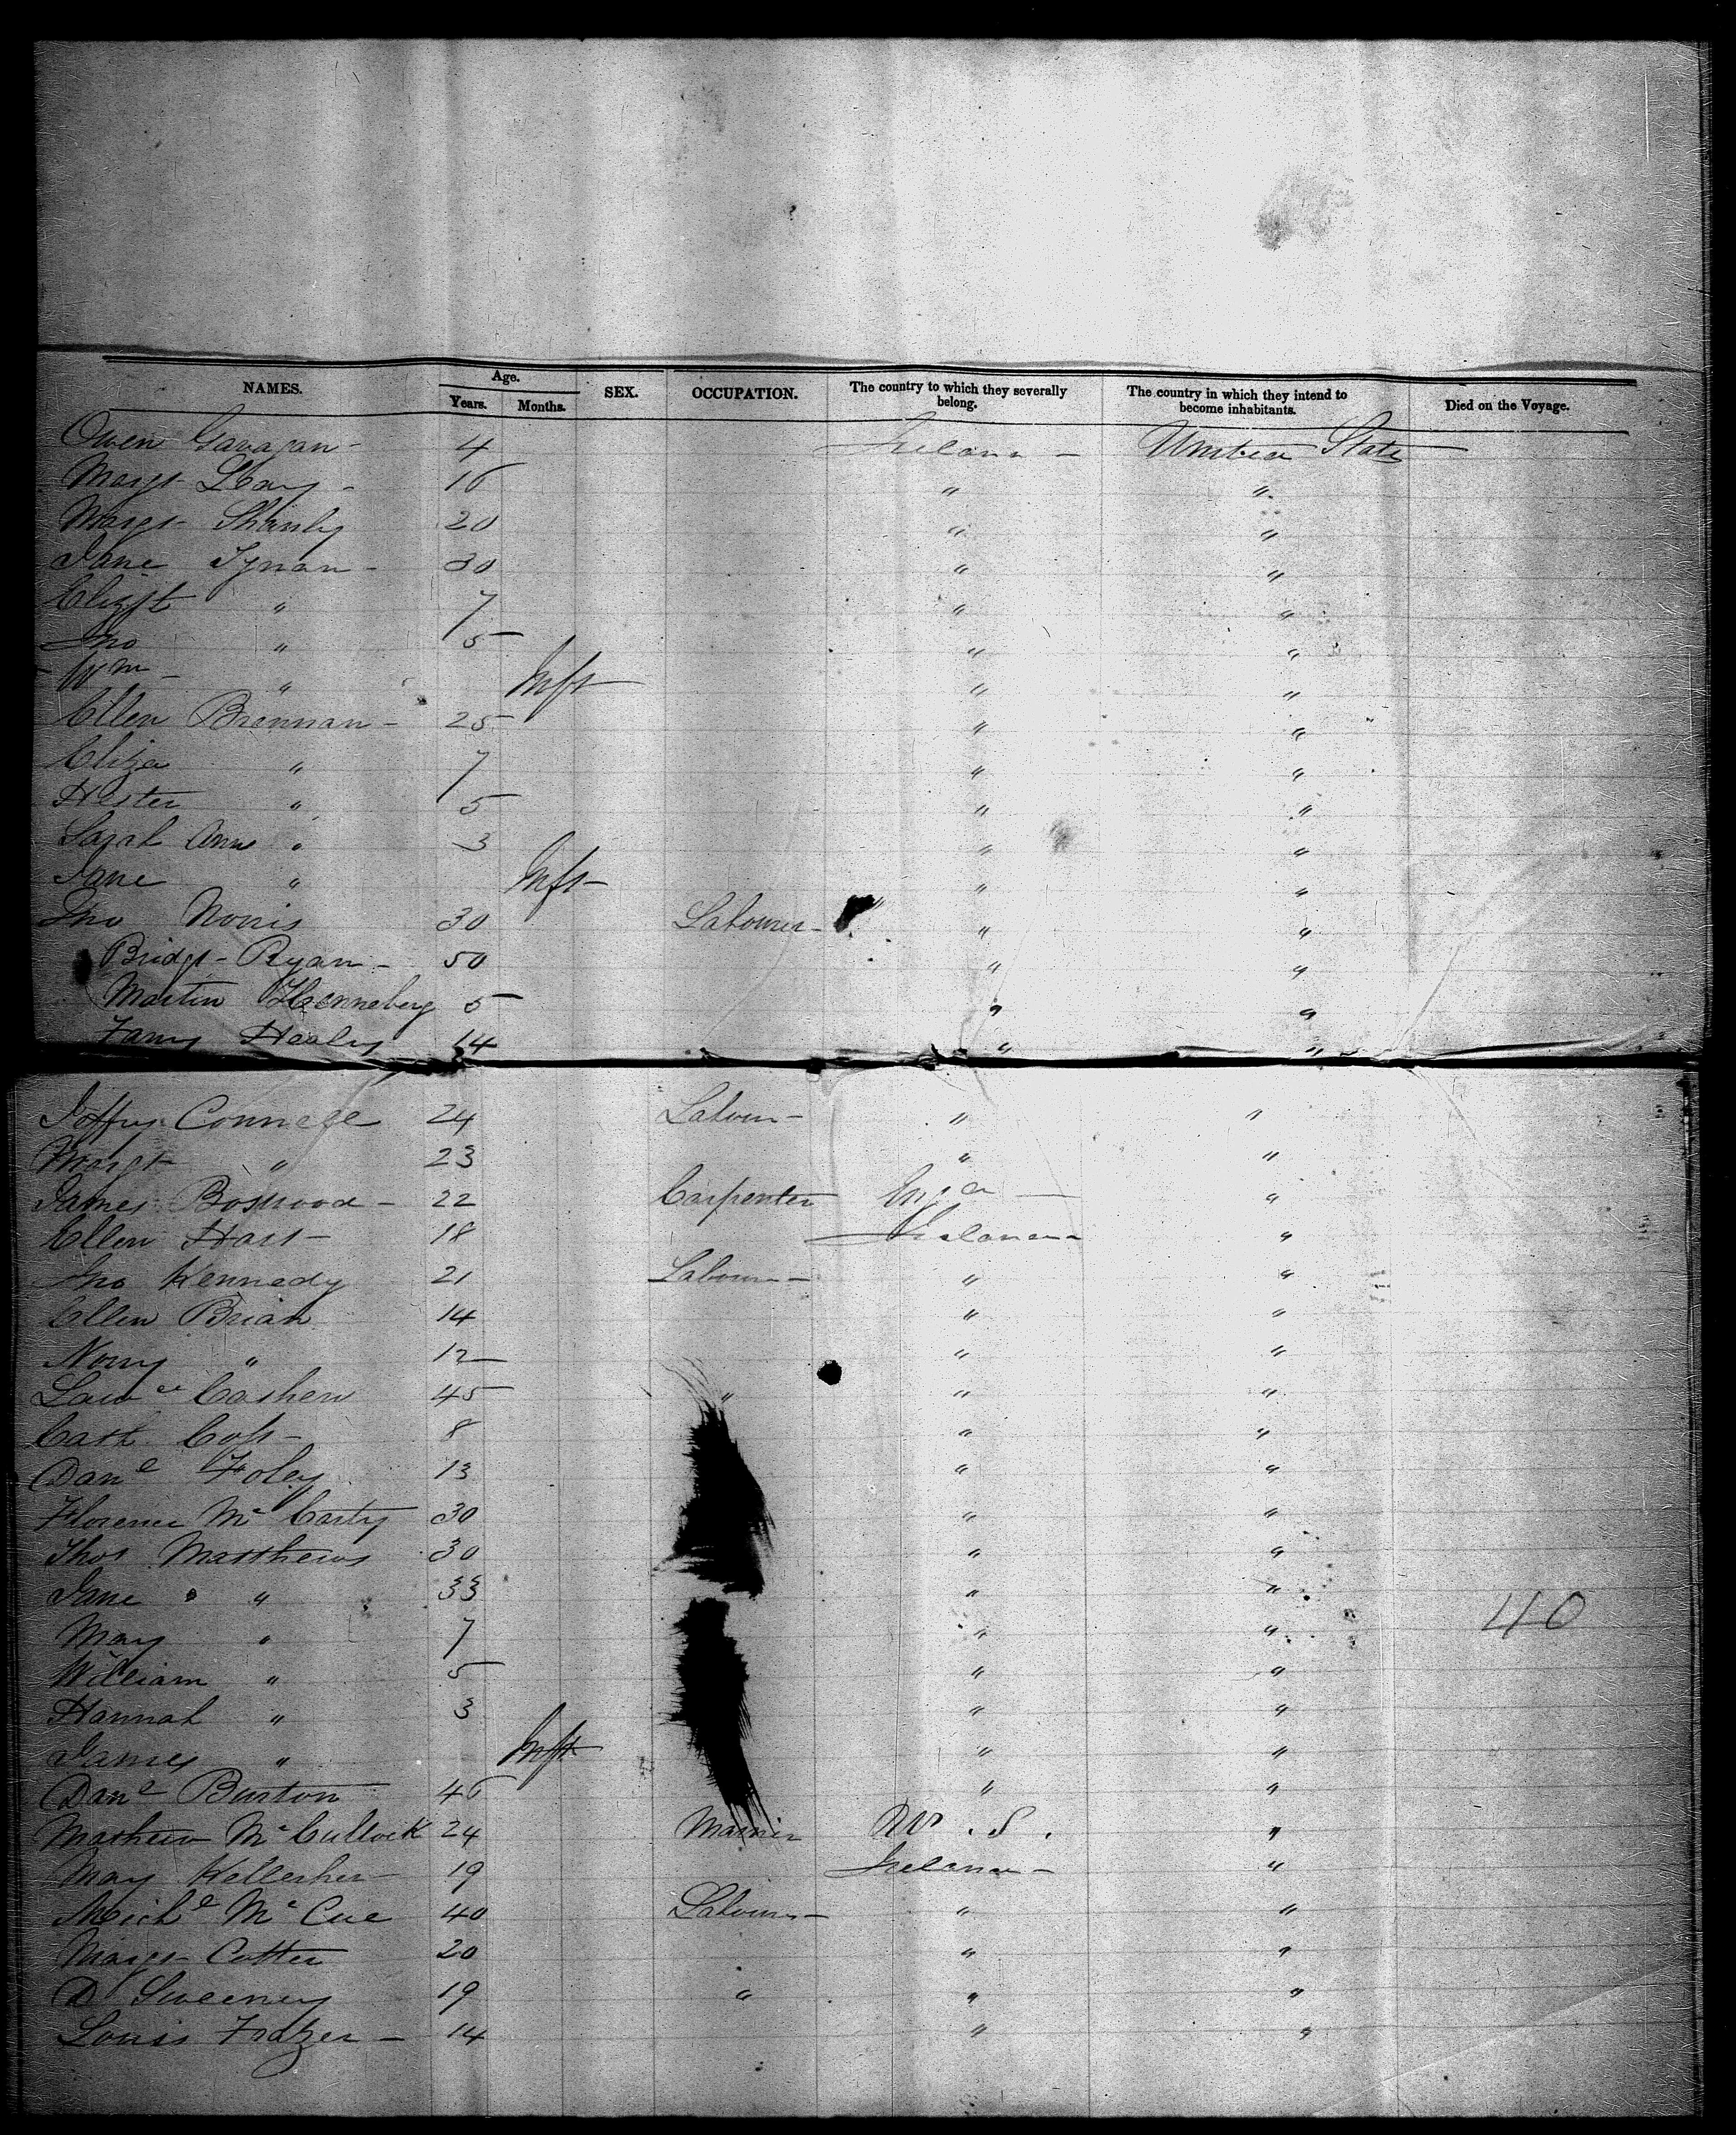 NAMES. Age. Years. Months. SEX. OCCUPATION. The country to which they severally belong. The country in which they intend to become inhabitants. Died on the Voyage.
Owen Ganagan - 4 Ireland - United States
Margt Leary - 16 " "
Margt Shanly 20 " "
Jane Tynan - 30 " "
Elizt " 7 " "
Jno " 5 " "
Wm - " Inft " "
Ellen Brennan - 25 " "
Eliza " 7 " "
Hester " 5 " "
Sarah Ann " 3 " "
Jane " Inft " "
Jno Norris 30 Labourer - " "
Bridgt - Ryan - 50 " "
Martin Henneberg 5 " "
Fanny Healey 14 " "
Connele 24 Labour - " "
Margt " 23 " "
James Boswood - 22 Carpenter Engd - "
Ellen Hart - 18 Ireland "
Jno Kennedy 21 Labour - " "
Ellen Brian 14 " "
Nory " 12 " "
Lawce Cashen 45 " " "
Cath 8 " "
Danl Foley 13 " "
Florence Mc Carty 30 " "
Thos Matthews 30 " "
Jane " 33 " "
Mary " 7 " " 40
William " 5 " "
Hannah " 3 " "
James " Inft " "
Danl Burton 46 " "
Mathew Mc Cullock 24 Marrier "
Mary Kellerher - 19 Ireland - "
Michl Mc Cue 40 Labour - " "
Margt Cotter 20 " "
D Sweeney 19 " " "
Louis Frazer - 14 " "